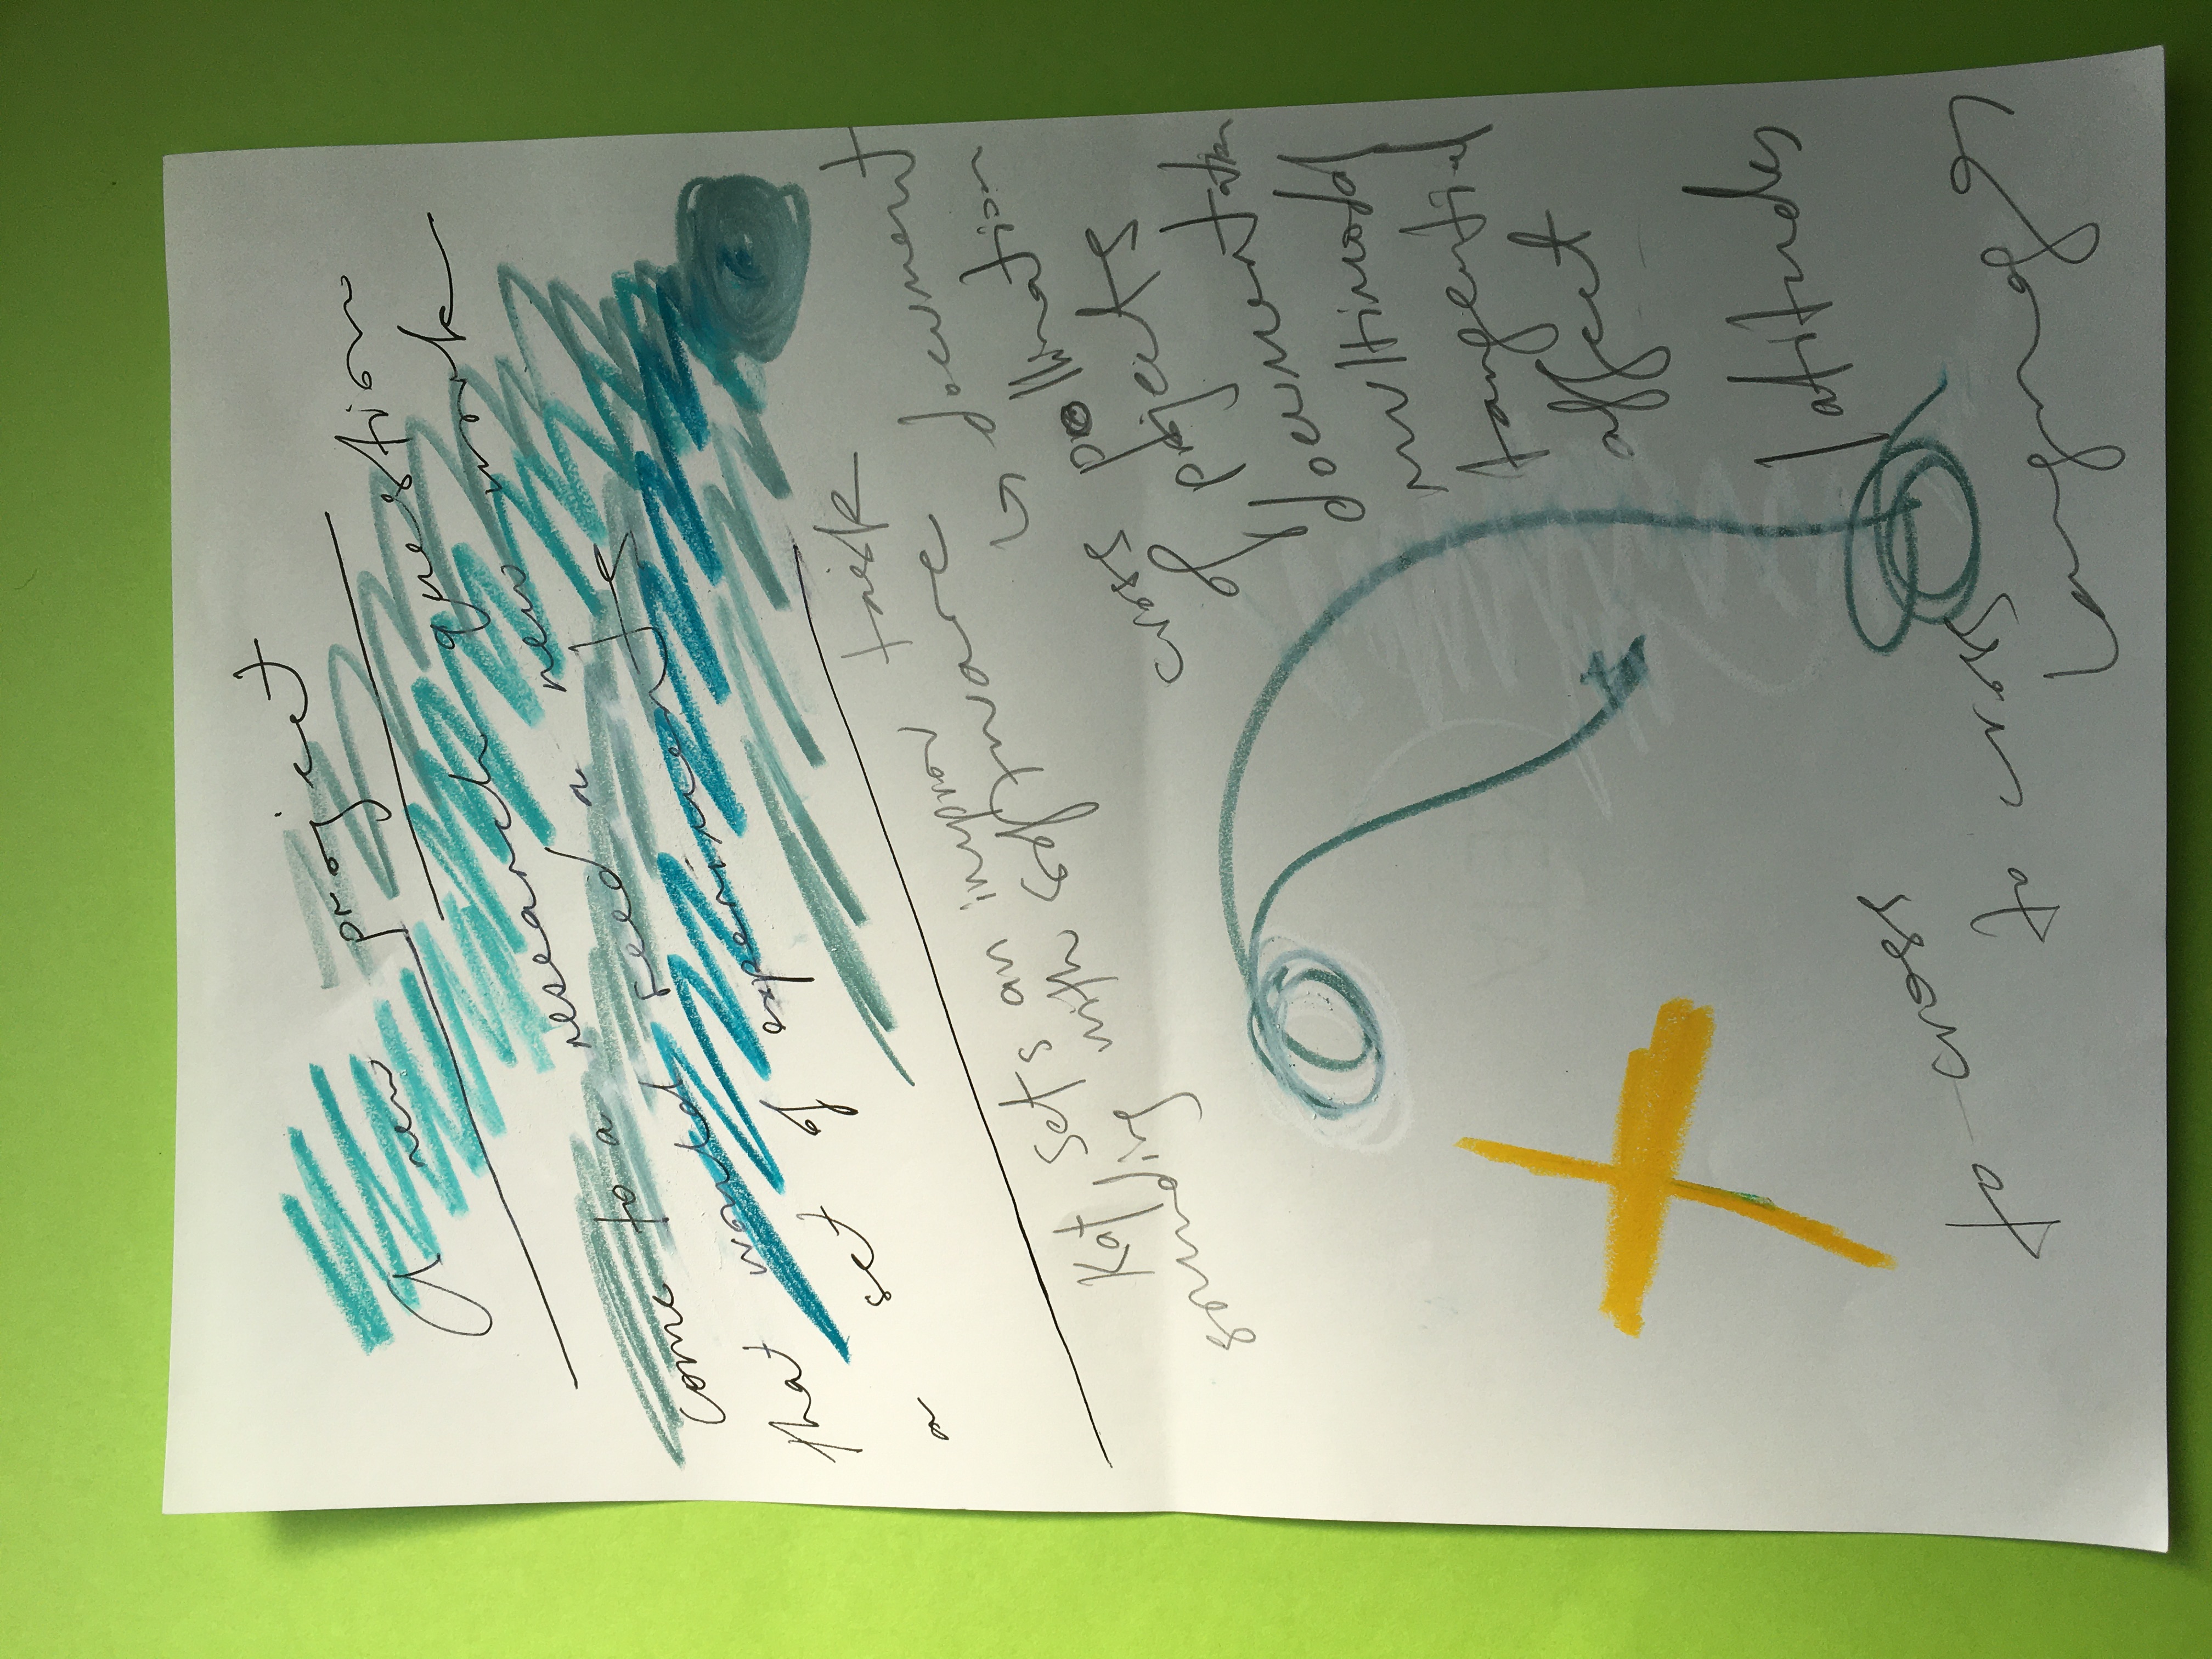 A new project
come to a research question
that would seed a new work
a set of experiments
Kat sets an improv task
sounding with software
↳ document
cross pollination
of projects
documentation
multimodal
tangential
affect
latitudes
to cross
to cross